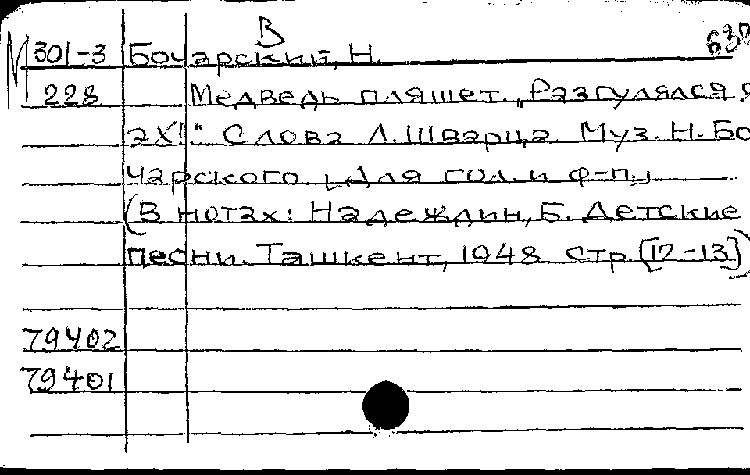 В 638
М 301-3 Бочарский, Н.
228 Медведь пляшет. „Разгулялся я
ах!" Слова Л. Шварца. Муз. Н. Бо
чарского. [Для гол. и ф-п.]
(В нотах: Надеждин, Б. Детские
песни. Ташкент, 1948 стр. [12-13])
79402
79401